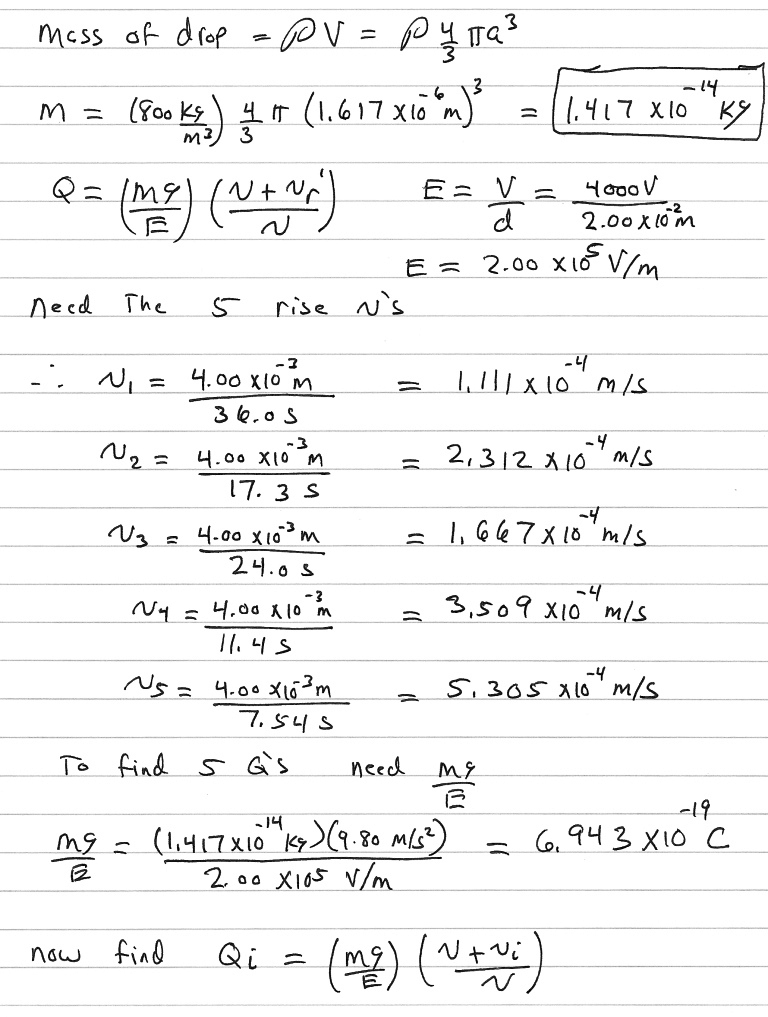 Mass of drop = ρV = ρ 4/3 πa³
M = (800 kg/m³) 4/3 π (1.617 x10⁻⁶ m)³ = 1.417 x10⁻¹⁴ kg
Q = (mg/E) ((v + vr')/v) E = V/d = 4000V/2.00 x10⁻² m
E = 2.00 x10⁵ V/m
need The 5 rise v's
∴ v₁ = 4.00 x10⁻³ m/36.0 s = 1.111 x10⁻⁴ m/s
v₂ = 4.00 x10⁻³ m/17.3 s = 2.312 x10⁻⁴ m/s
v₃ = 4.00 x10⁻³ m/24.0 s = 1.667 x10⁻⁴ m/s
v₄ = 4.00 x10⁻³ m/11.4 s = 3.509 x10⁻⁴ m/s
v₅ = 4.00 x10⁻³ m/7.54 s = 5.305 x10⁻⁴ m/s
To find 5 Q's need mg/E
mg/E = (1.417 x10⁻¹⁴ kg)(9.80 m/s²)/2.00 x10⁵ V/m = 6.943 x10⁻¹⁹ C
now find Qi = (mg/E) ((v + vi)/v)